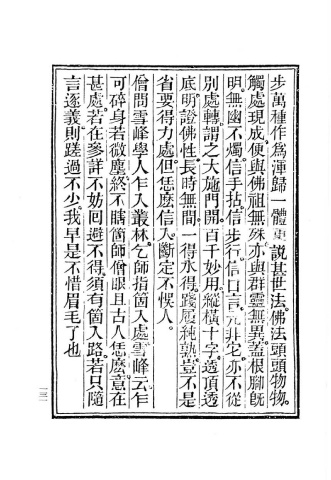 步萬種作爲渾歸一體更說甚世法佛法頭頭物物。
觸處現成。便與佛祖無殊。亦與羣靈無異。蓋根腳旣
明。無幽不燭。信手拈。信步行。信口言。元非它。亦不從
別處轉。謂之大施門開。百千妙用。縱橫十字。透頂透
底。明證佛性。長時無間。一得永得。踐履純熟。豈不是
省要得力處。但恁麽信入。斷定不悞人。
僧問雪峰。學人乍入叢林。乞師指箇入處。雪峰云。乍
可碎身若微塵。終不瞎箇師僧眼。且古人恁麽意在
甚處。若在參詳。不妨回避不得。須有箇入路。若只隨
言逐義。則蹉過不少。我早是不惜眉毛了也
一三一